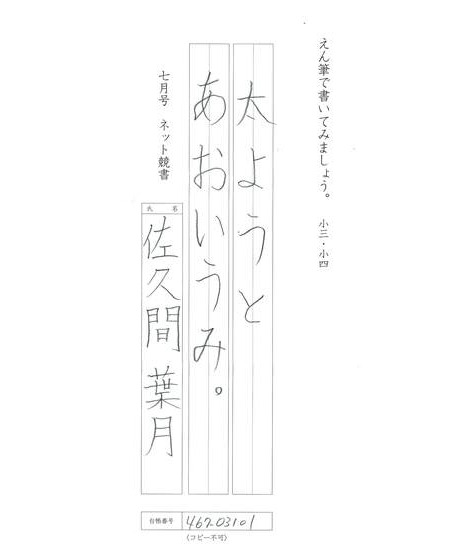 えん筆で書いてみましょう。 小三・小四
太ようと
あおいうみ。
七月号 ネット競書
氏名
佐久間 葉月
台帳番号 467-03101
(コピー不可)